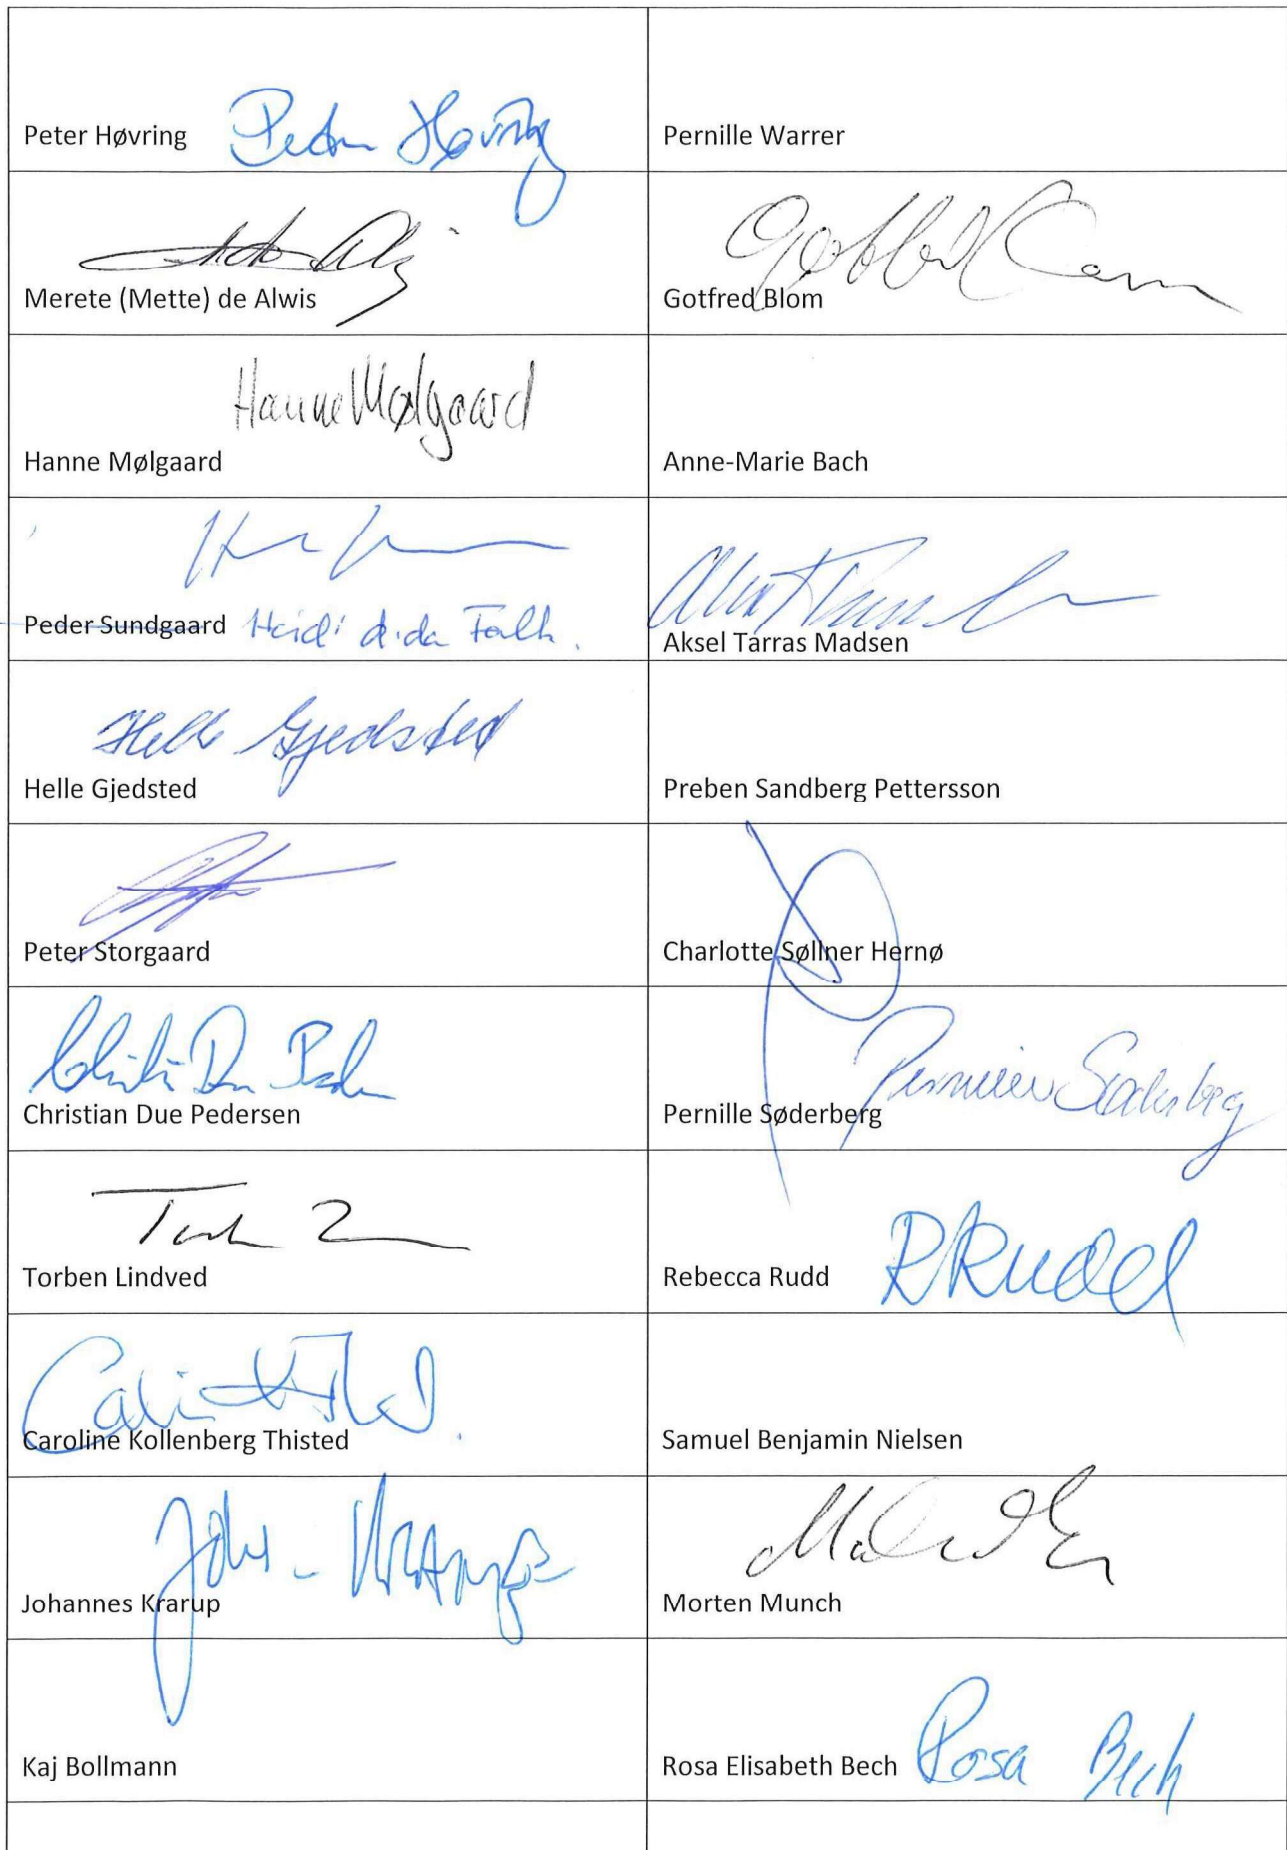 Peter Høvring Peter Høvring
Pernille Warrer
Merete (Mette) de Alwis
Gotfred Blom
Hanne Mølgaard
Hanne Mølgaard
Anne-Marie Bach
Peder Sundgaard Heidi
Aksel Tarras Madsen
Helle Gjedsted
Helle Gjedsted
Preben Sandberg Pettersson
Peter Storgaard
Charlotte Søllner Hernø
Christian Due Pedersen
Pernille Søderberg
Pernille Søderberg
Torben Lindved
Rebecca Rudd RRudd
Caroline Kollenberg Thisted
Samuel Benjamin Nielsen
Johannes Krarup
Morten Munch
Kaj Bollmann
Rosa Elisabeth Bech Rosa Bech